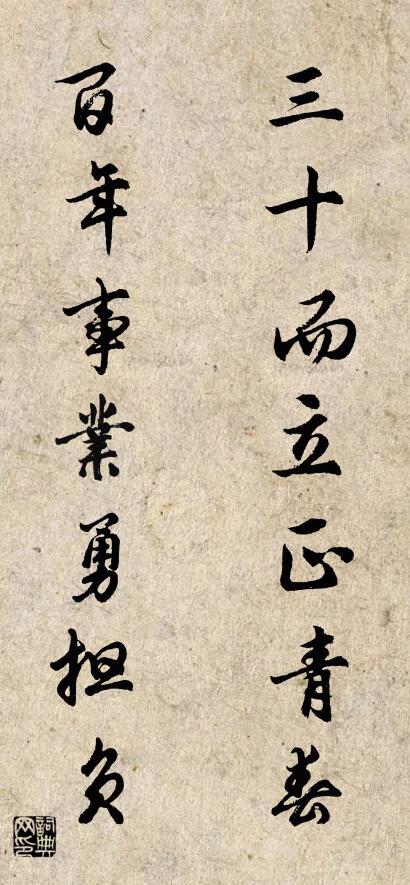 三十而立正青春
百年事業勇担负
詞典网印